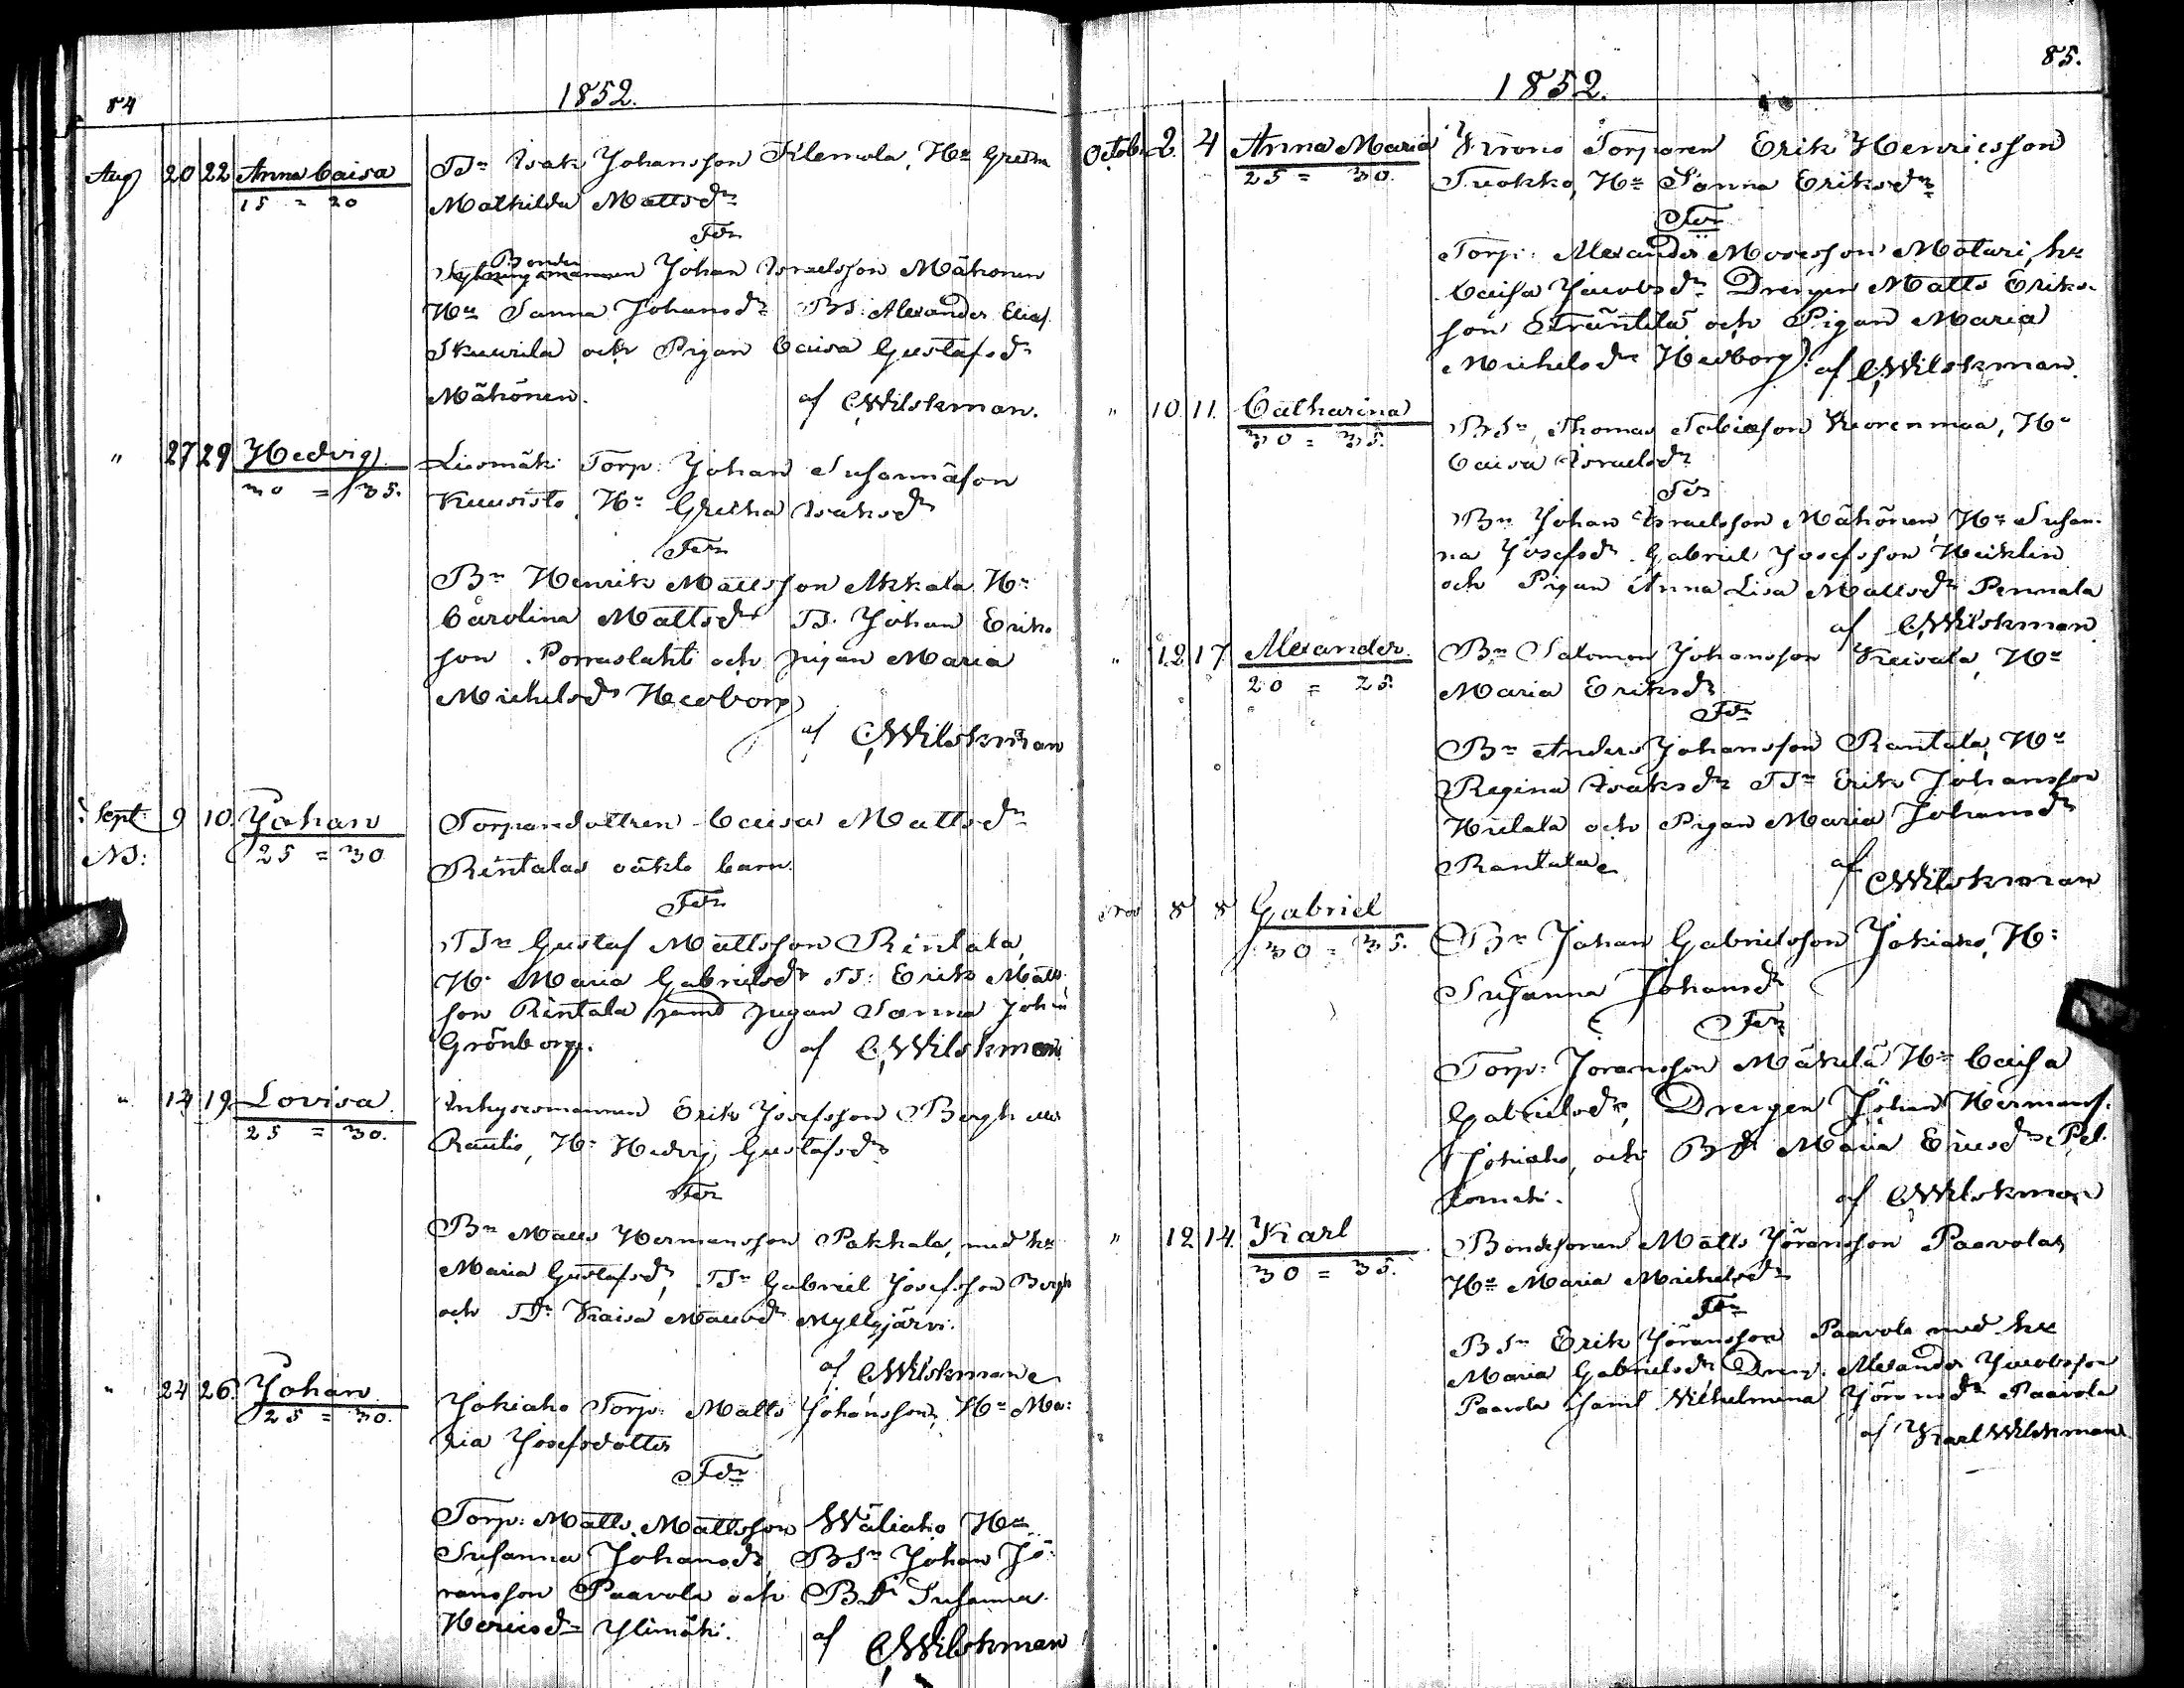 84
1852.
Aug 20 22 Anna Caisa
15 = 20
TSn Isak Johansson Klemola, Hu Gretha
Mathilda Mattsdr
Fdr
Bonden
Johan Israelsson Mähönen
Hu Sanna Johansdr BS: Alexander Elias
Skuurila och Pigan Caisa Gustafsdr
Mähönen.
af CWilskman.
" 27 29 Hedvig
30 = 35.
Liesmäki Torp: Johan Susannäson
Kuusisto, Hu Gretha Isaksdr
Fdr
Bn Henrik Mattsson Akkala Hu
Carolina Mattsdr TS. Johan Eriks
son Porraslahti och pigan Maria
Michelsdr Hedborg
af CWilskman
Sept: 9 10. Johan
25 = 30
NB:
Torparedottren Caisa Mattsdr
Rintalas oäkta barn.
Fdr
TSn Gustaf Mattsson Rintala,
Hu Maria Gabrielsdr TS: Erik Matts
son Rintala samt pigan Sanna Johans
Grönborg.
af CWilskman
" 14 19 Lovisa
25 = 30.
Inhysesmannen Erik Josefsson Bergh
Rautio, Hu Hedvig Gustafsdr
Fdr
Bn Matts Hermansson Pakkala, med hu
Maria Gustafsdr, TSn Gabriel Josefsson Bergh
och TDr Kaisa Mattsdr Myllyjärvi.
af CWilskman
" 24 26. Johan
25 = 30.
Jokiaho Torp: Matts Johansson, Hu Ma:
ria Josefsdotter
Fdr
Torp: Matts Mattsson Wäliaho Hu
Susanna Johansdr, BSn Johan Jö:
ransson Paavola och BDr Susanna
Henricsdr Ylimäki.
af CWilskman
85.
1852.
Octob. 2. 4 Anna Maria
25 = 30.
Krono Torparen Erik Henricsson
Tuokko, Hu Sanna Eriksdr
Fdr
Torp: Alexander Mosesson Mötari, hu
Caisa Jacobsdr Drengen Matts Eriks-
son Träntilä och Pigan Maria
Michelsdr Hedborg. af CWilskman.
" 10 11. Catharina
30 = 35.
BSn, Thomas Tobiasson Kuorenmaa, Hu
Caisa Israelsdr
Fdr
Bn Johan Israelsson Mähönen, Hu Susan-
na Josefsdr. Gabriel Josefsson Heiklin
och Pigan Anna Lisa Mattsdr Pennala
af CWilskman
" 12 17 Alexander.
20 = 25.
Bn Salomon Johansson Keisala, Hu
Maria Eriksdr
Fdr
Bn Anders Johansson Rantala, Hu
Regina Isaksdr TSn Erik Johansson
Hietala och Pigan Maria Johansdr
Rantala
af CWilskman
Nov 8 8 Gabriel
30 = 35.
Bn Johan Gabrielsson Jokiaho, Hu:
Susanna Johansdr
Fdr
Torp: Joransson Mäkelä Hu Caisa
Gabrielsdr, Drengen Johan Hermans.
Jokiaho, och BDr Maria Eliesdr Pel-
lomäki.
af CWilskman
" 12 14. Karl
30 = 35.
Bondesonen Matts Jöransson Paavola
Hu Maria Michelsdr
Fdr
BSn Erik Jöransson Paavola med hu
Maria Gabrielsdr Dreng. Alexander Jacobsson
Paavola samt Wilhelmina Jöransdr Paavola
af Karl Wilskman